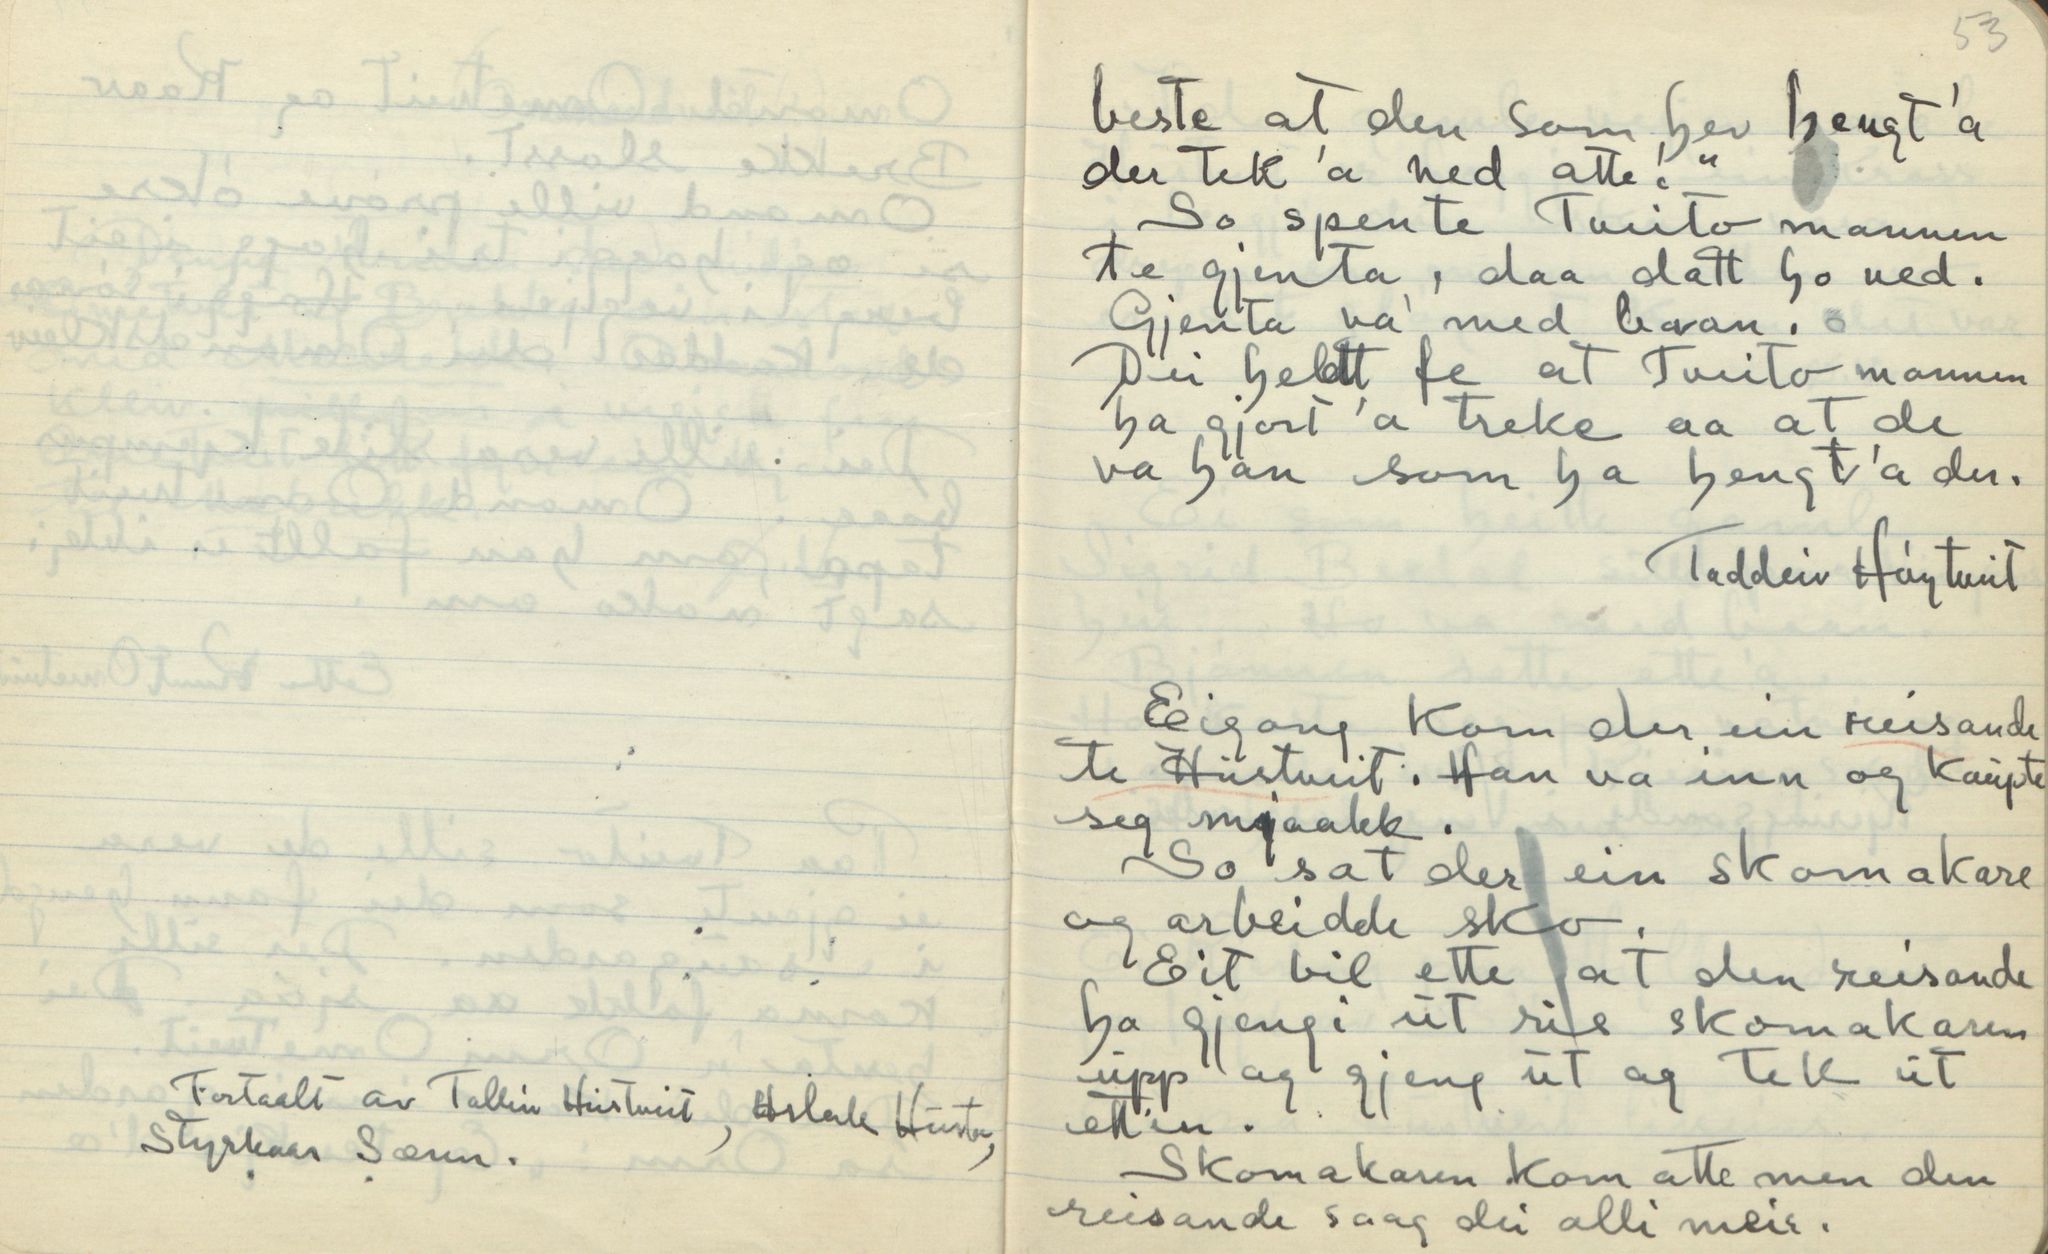 Fortaalt av Talleiv Hústveit, Aslak Hústv,
Styrkaar Særen.
53
beste at den som hev hengt'a
der tek'a ned atte!"
So spente Tveito mannen
te gjenta, daa datt ho ned.
Gjenta va' med bavan.
Dei heldt fe at Tveito mannen
ha gjort'a treke aa at de
va han som ha hengt'a der.
Taddeiv Høytveit
Eigong kom der ein reisande
te Hústveit. Han va inn og kaupte
seg mjaalk.
So sat der ein skomakare
og arbeidde sko.
Eit bil ette at den reisande
ha gjengi út ris skomakaren
úpp og gjeng út og tek út
ett'en.
Skomakaren kom atte men den
reisande saag dei alli meir.